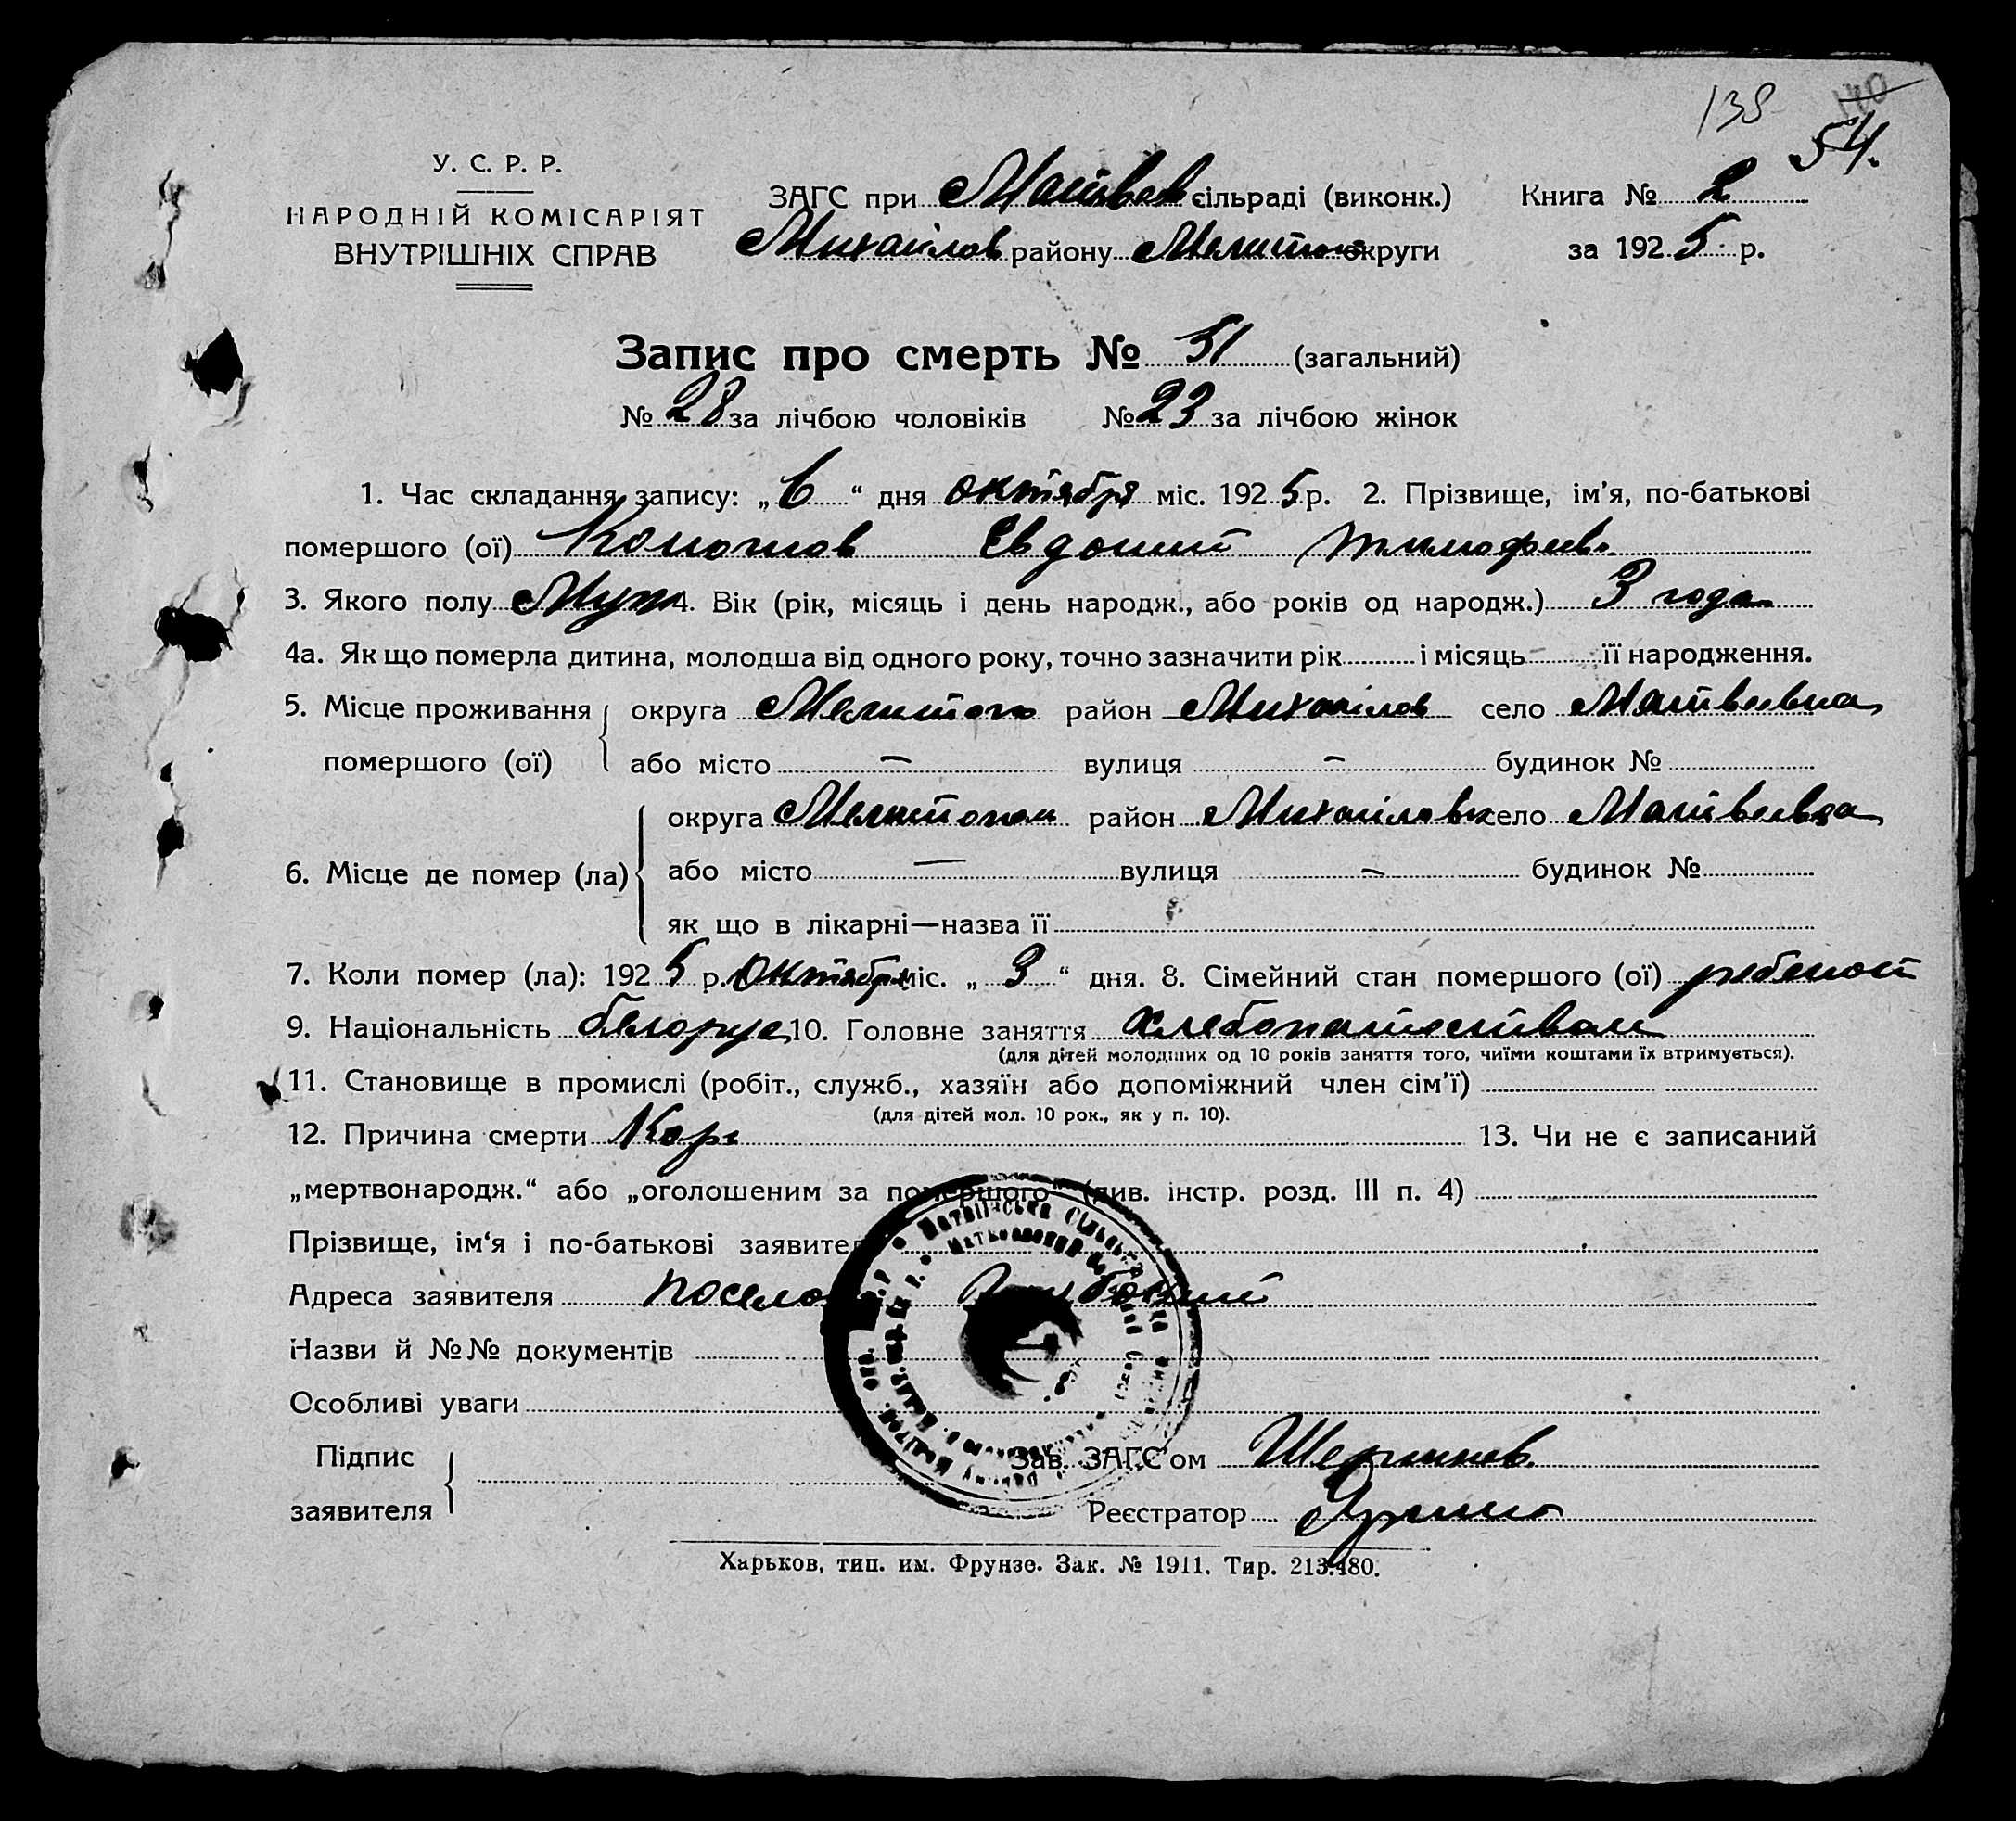 138
54.
У. С. Р. Р.
НАРОДНІЙ КОМІСАРІЯТ
ВНУТРІШНІХ СПРАВ
ЗАГС при Матвеев сільраді (виконк.) Книга № 2
Михайлов району Мелитоп округи за 1925 р.
Запис про смерть № 51 (загальний)
№ 28 за лічбою чоловіків № 23 за лічбою жінок
1. Час складання запису: „6“ дня октября міс. 1925 р. 2. Прізвище, ім'я, по-батькові
помершого (ої) Евдоким Тимофеев.
3. Якого полу Муж 4. Вік (рік, місяць і день народж., або років од народж.) 3 года
4а. Як що померла дитина, молодша від одного року, точно зазначити рік і місяць — її народження.
5. Місце проживання округа Мелитоп район Михайлов село Матвеевка
помершого (ої) або місто — вулиця — будинок №
округа Мелитопол район Михайлов село Матвеевка
6. Місце де помер (ла) або місто — вулиця — будинок №
як що в лікарні—назва її
7. Коли помер (ла): 1925 р. Октября міс. „3“ дня. 8. Сімейний стан помершого (ої) ребенок
9. Національність белорус 10. Головне заняття Хлебопашеством
(для дітей молодших од 10 років заняття того, чиїми коштами їх втримується).
11. Становище в промислі (робіт., служб., хазяїн або допоміжний член сім'ї)
(для дітей мол. 10 рок., як у п. 10).
12. Причина смерти Корь 13. Чи не є записаний
„мертвонародж.“ або „оголошеним за помершого“ (див. інстр. розд. III п. 4)
Прізвище, ім'я і по-батькові заявителя
Адреса заявителя
Назви й №№ документів
Особливі уваги
Підпис
заявителя
Зав. ЗАГС'ом
Реєстратор
Харьков, тип. им. Фрунзе. Зак. № 1911. Тир. 213.480.